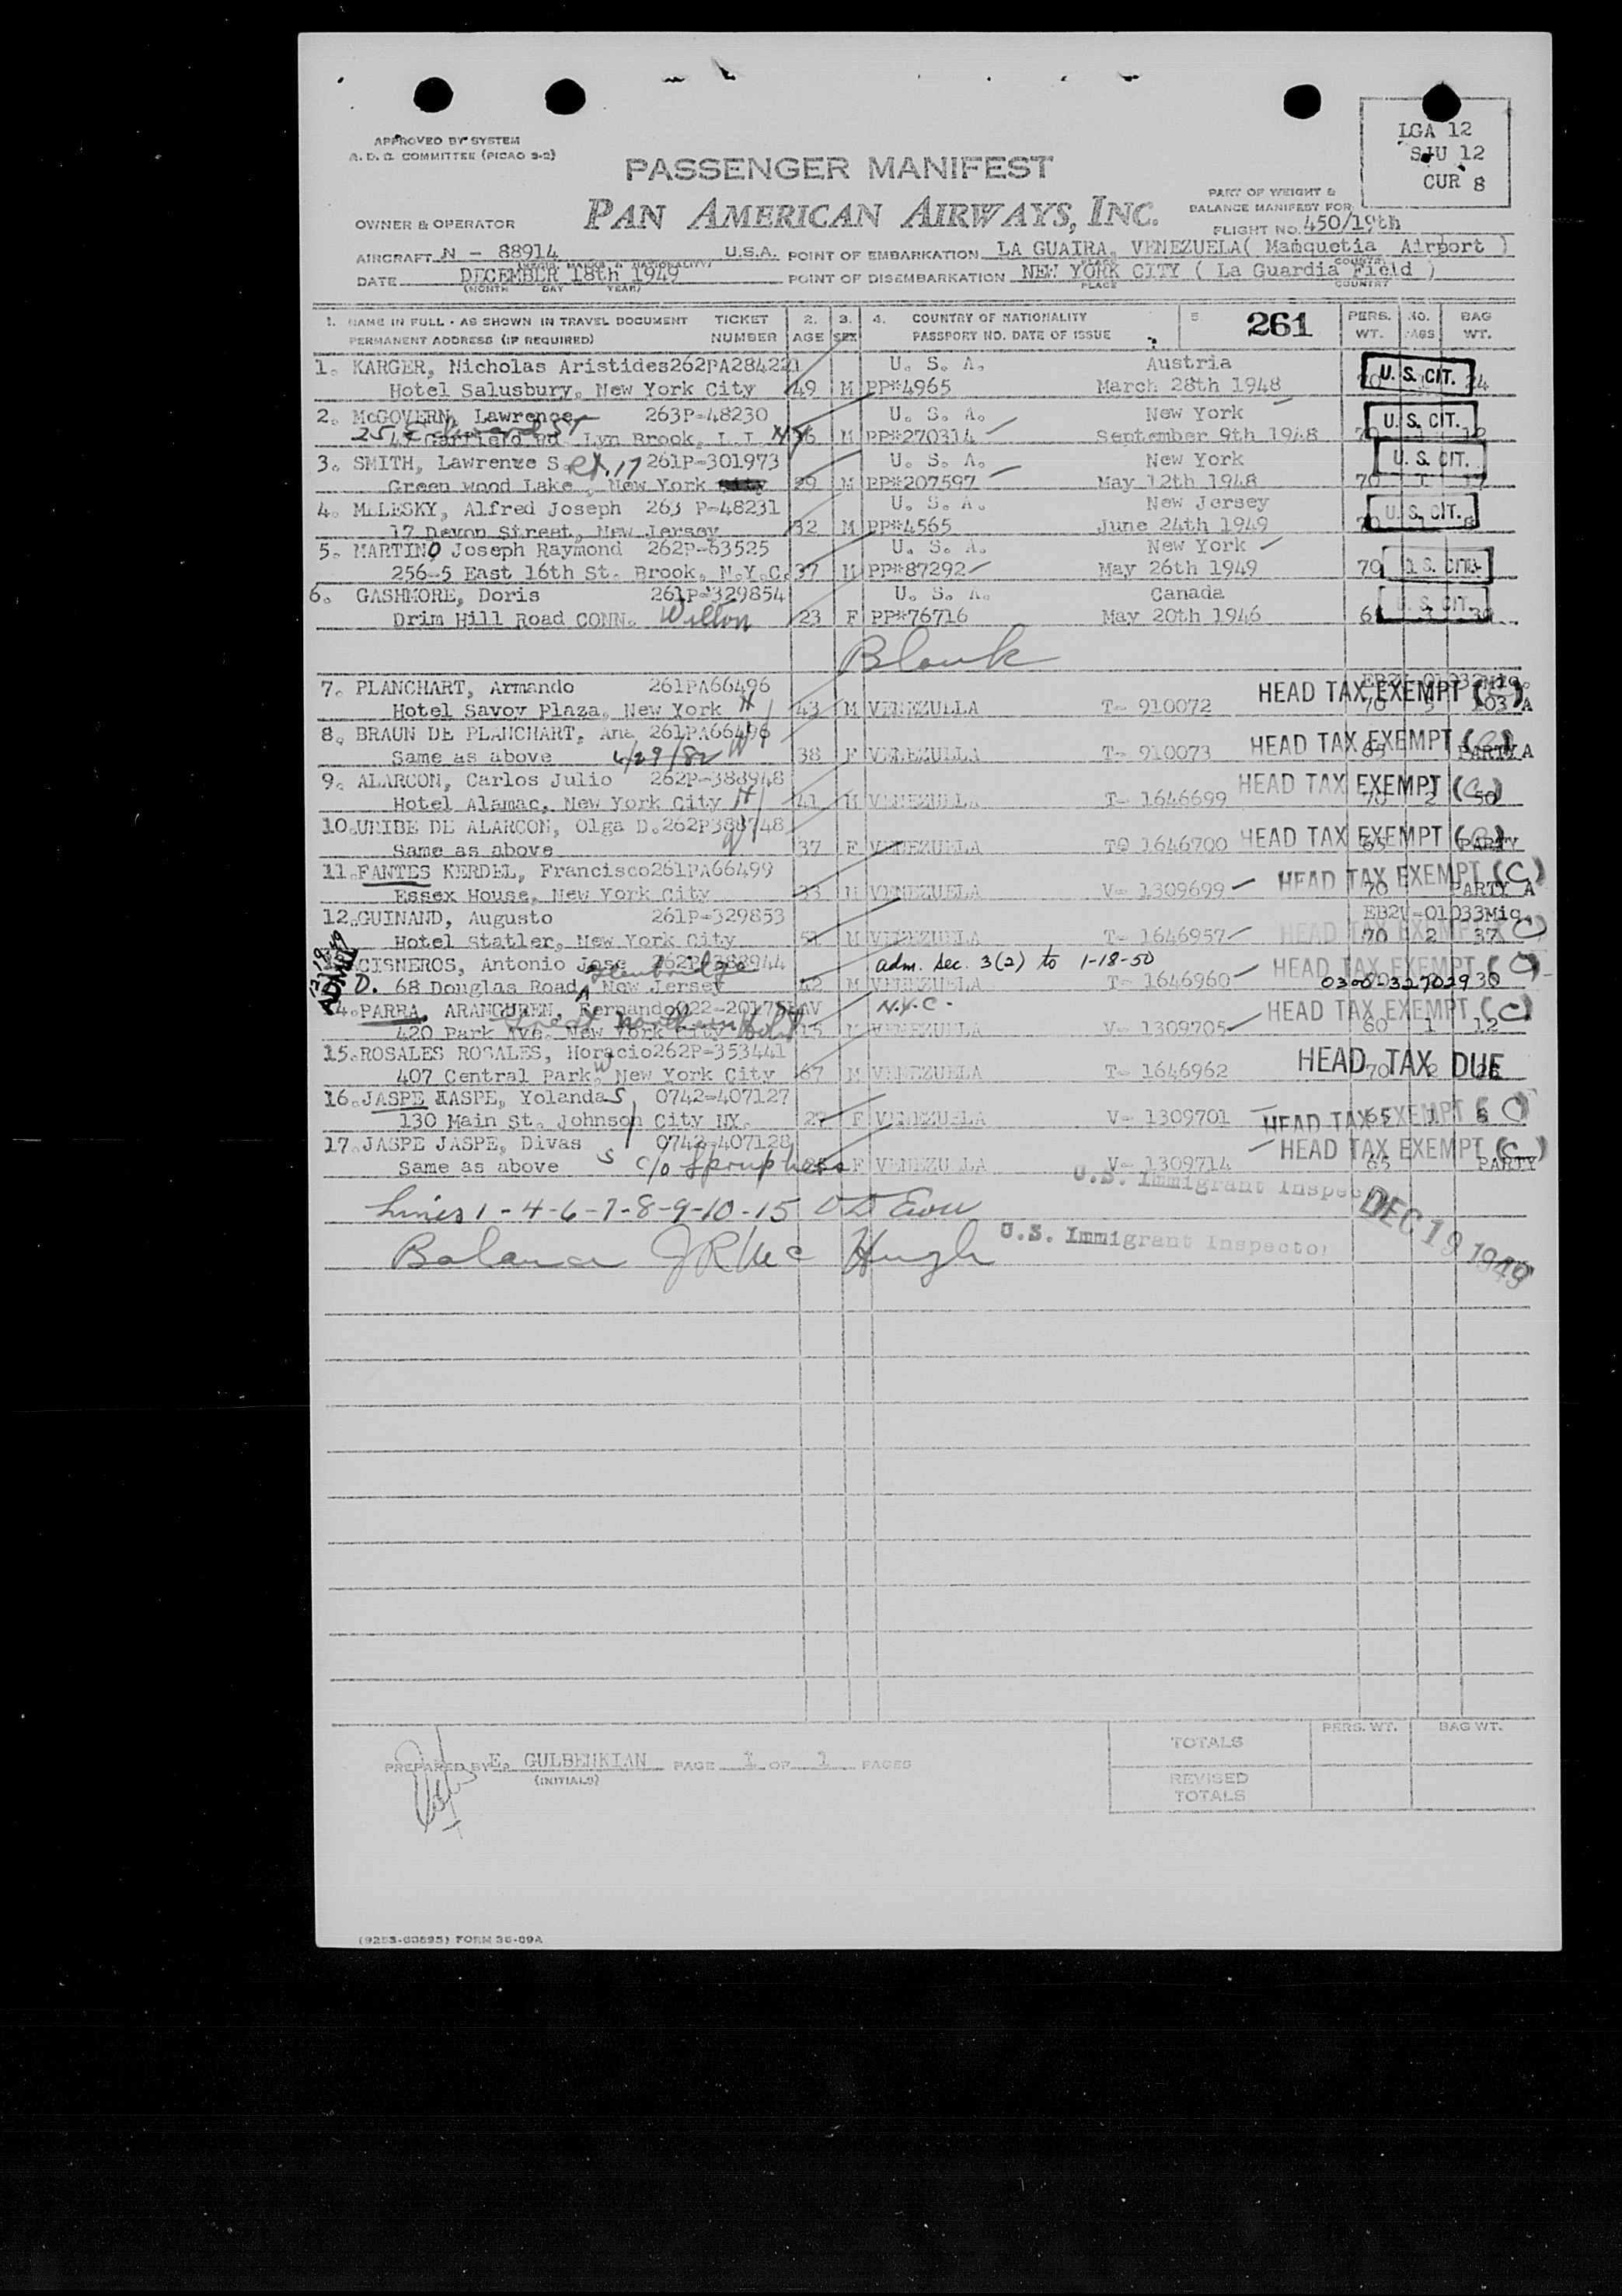 APPROVED BY SYSTEM
A. D. Q. COMMITTEE (PICAO S-2)
LGA 12
SJU 12
CUR 8
PASSENGER MANIFEST
PAN AMERICAN AIRWAYS, INC.
PART OF WEIGHT &
BALANCE MANIFEST FOR
FLIGHT NO. 450/19th
OWNER & OPERATOR
AIRCRAFT N - 88914 U.S.A. POINT OF EMBARKATION LA GUAIRA, VENEZUELA( Maiquetia Airport )
DATE DECEMBER 18th 1949 POINT OF DISEMBARKATION NEW YORK CITY ( La Guardia Field )
(MONTH DAY YEAR) PLACE COUNTRY
1. NAME IN FULL - AS SHOWN IN TRAVEL DOCUMENT TICKET 2. 3. 4. COUNTRY OF NATIONALITY 5. 261 PERS. NO. BAG
PERMANENT ADDRESS (IF REQUIRED) NUMBER AGE SEX PASSPORT NO. DATE OF ISSUE WT. BAGS WT.
1. KARGER, Nicholas Aristides 262PA284221 U. S. A. Austria
Hotel Salusbury, New York City 49 M PP#4965 March 28th 1948 U. S. CIT. 24
2. McGOVERN, Lawrence 263P-48230 U. S. A. New York
Garfield Rd. Lyn Brook, L.I. NY 36 M PP#270314 September 9th 1948 70 U. S. CIT. 12
3. SMITH, Lawrence S 261P-301973 U. S. A. New York
Green wood Lake, New York 29 M PP#207597 May 12th 1948 70 1 17 U. S. CIT.
4. MLLESKY, Alfred Joseph 263 P-48231 U. S. A. New Jersey
17 Devon Street, New Jersey 32 M PP#4565 June 24th 1949 70 U. S. CIT.
5. MARTINO Joseph Raymond 262P-63525 U. S. A. New York
256-5 East 16th St. Brook, N.Y.C. 37 M PP#87292 May 26th 1949 70 U. S. CIT.
6. GASHMORE, Doris 261P-329854 U. S. A. Canada
Drim Hill Road CONN. Wilton 23 F PP#76716 May 20th 1946 U. S. CIT.
Blank
7. PLANCHART, Armando 261PA66496 EB2V-01032Mic.
Hotel Savoy Plaza, New York 43 M VENEZUELA T- 910072 HEAD TAX EXEMPT (C) 70 5 103 A
8. BRAUN DE PLANCHART, Ana 261PA66496
Same as above 4/29/82 38 F VENEZUELA T- 910073 HEAD TAX EXEMPT (C) 65 PARTY A
9. ALARCON, Carlos Julio 262P-388948
Hotel Alamac, New York City 41 M VENEZUELA T- 1646699 HEAD TAX EXEMPT (C) 70 2 50
10. URIBE DE ALARCON, Olga D. 262P388748
Same as above 37 F VENEZUELA TO 1646700 HEAD TAX EXEMPT (C) 65 PARTY
11. FANTES KERDEL, Francisco 261PA66499
Essex House, New York City 23 M VENEZUELA V- 1309699 HEAD TAX EXEMPT (C) 70 PARTY A
12. GUINAND, Augusto 261P-329853 EB2V-01033Mic.
Hotel Statler, New York City 51 M VENEZUELA T- 1646957 HEAD TAX EXEMPT (C) 70 2 37
CISNEROS, Antonio Jose 262P-388944 adm. sec. 3(2) to 1-18-50
D. 68 Douglas Road, New Jersey 42 M VENEZUELA T- 1646960 HEAD TAX EXEMPT (C) 0300-327029 30
12-19-49 ADMITTED
14. PARRA, ARANGUREN, Fernando N.Y.C.
420 Park Ave. New York City 15 M VENEZUELA V- 1309705 HEAD TAX EXEMPT (C) 60 1 12
15. ROSALES ROSALES, Horacio 262P-353441
407 Central Park W, New York City 67 M VENEZUELA T- 1646962 HEAD TAX DUE 70 2
16. JASPE JASPE, Yolanda S 0742-407127
130 Main St. Johnson City NY. 27 F VENEZUELA V- 1309701 HEAD TAX EXEMPT (C) 65 1
17. JASPE JASPE, Divas 0742-407128
Same as above S c/o F VENEZUELA V- 1309714 HEAD TAX EXEMPT (C) 65 PARTY
U.S. Immigrant Inspec
Lines 1-4-6-7-8-9-10-15
Balance J R McHugh U.S. Immigrant Inspector DEC 19 1949
TOTALS PERS. WT. BAG WT.
REVISED TOTALS
PREPARED BY E. GULBENKIAN PAGE 1 OF 1 PAGES
(INITIALS)
(9253-60893) FORM 36-09A